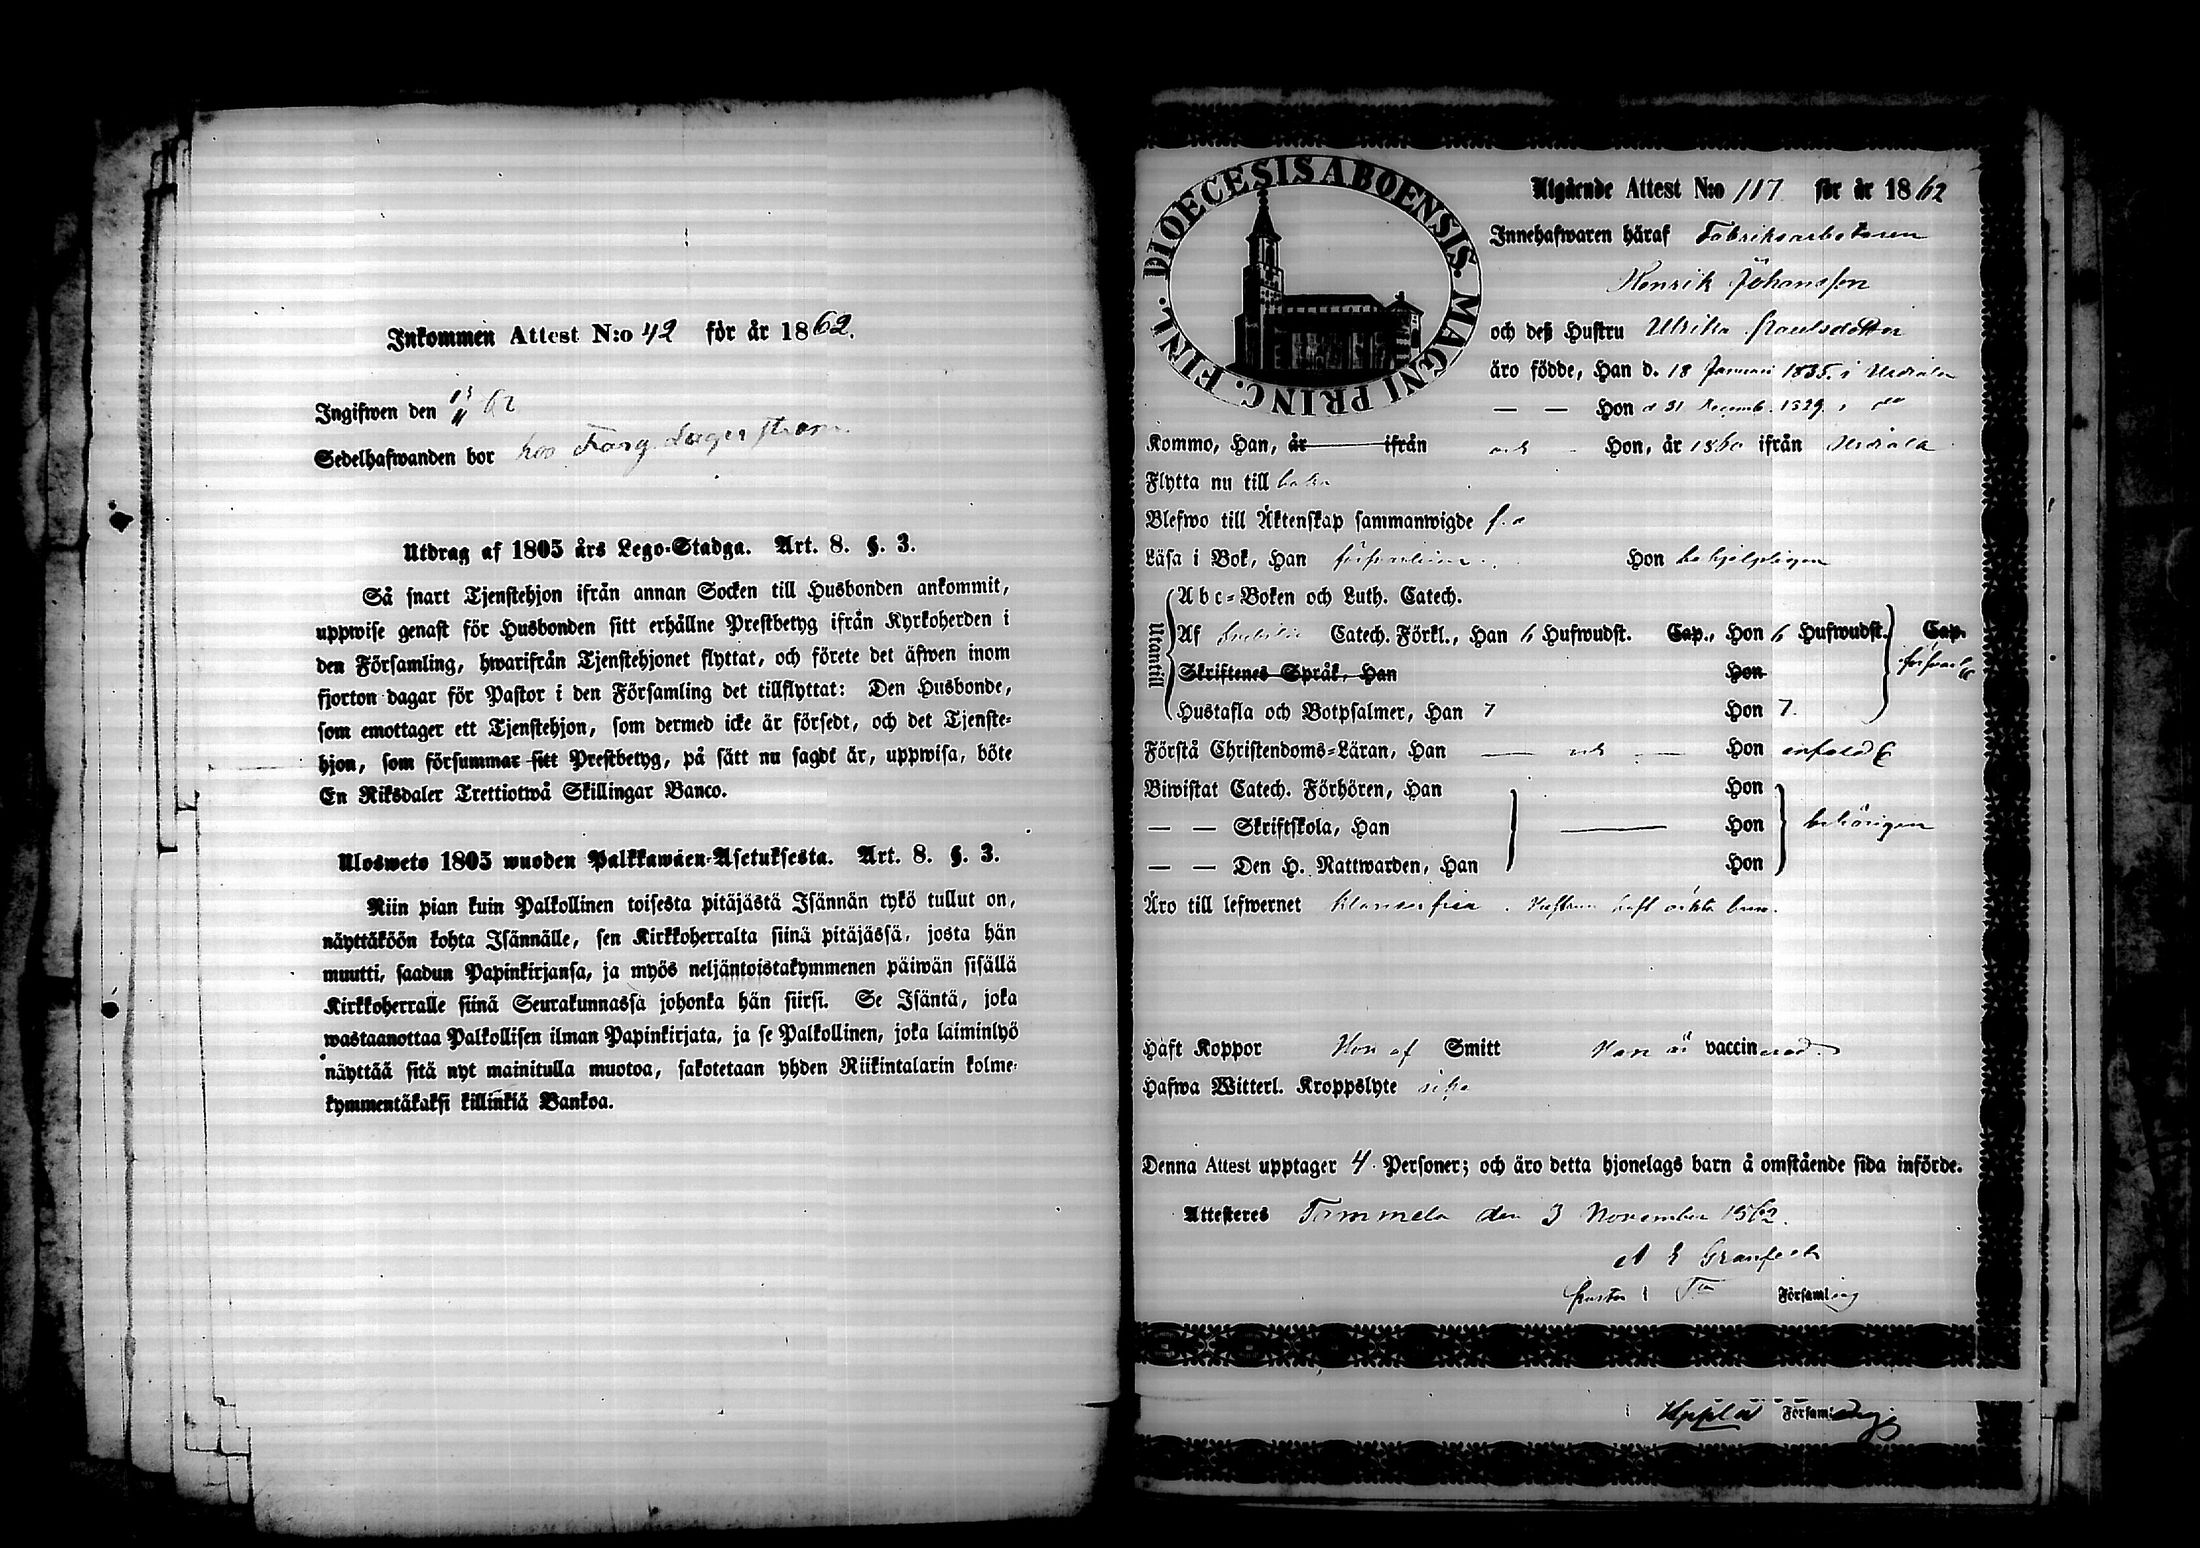 Inkommen Attest N:o 42 för år 1862.
Ingifwen den 13/11 62
Sedelhafwanden bor hos Färg. Lagerström
Utdrag af 1805 års Lego-Stadga. Art. 8. §. 3.
Så snart Tjenstehjon ifrån annan Socken till Husbonden ankommit,
uppwise genast för Husbonden sitt erhållne Prestbetyg ifrån Kyrkoherden i
den Församling, hwarifrån Tjenstehjonet flyttat, och förete det äfwen inom
fjorton dagar för Pastor i den Församling det tillflyttat: Den Husbonde,
som emottager ett Tjenstehjon, som dermed icke är försedt, och det Tjenste-
hjon, som försummar sitt Prestbetyg, på sätt nu sagdt är, uppwisa, böte
En Riksdaler Trettiotwå Skillingar Banco.
Uloswето 1805 wuoden Palkkawäen-Asetuksesta. Art. 8. §. 3.
Niin pian kuin Palkollinen toisesta pitäjästä Isännän tykö tullut on,
näyttäköön kohta Isännälle, sen Kirkkoherralta siinä pitäjässä, josta hän
muutti, saadun Papinkirjansa, ja myös neljäntoistakymmenen päiwän sisällä
Kirkkoherralle siinä Seurakunnassa johonka hän siirsi. Se Isäntä, joka
wastaanottaa Palkollisen ilman Papinkirjata, ja se Palkollinen, joka laiminlyö
näyttää sitä nyt mainitulla muotoa, sakotetaan yhden Riikintalarin kolme-
kymmentäkaksi killinkiä Bankoa.
DIOECESIS ABOENSIS. MAGNI PRINC. FINL.
Utgående Attest N:o 117 för år 1862
Innehafwaren häraf Fabriksarbetaren
Henrik Johansson
och deß Hustru Ulrika Paulsdotter
äro födde, Han d. 18 Januari 1835. i Urdiala
— — Hon d 31 Decemb. 1829. i do
Kommo, Han, år ifrån och Hon, år 1860 ifrån Urdiala
Flytta nu till
Blefwo till Äktenskap sammanwigde
Läsa i Bok, Han försvarligen Hon behjelpligen
Abc-Boken och Luth. Catech.
Utantill
Af Svebilii Catech. Förkl., Han 6 Hufwudst. Cap., Hon 6 Hufwudst. Cap.
försvarl
Skriftenes Språk, Han Hon
Hustafla och Botpsalmer, Han 7 Hon 7.
Förstå Christendoms-Läran, Han — och — Hon enfald
Biwistat Catech. Förhören, Han Hon
— — Skriftskola, Han — Hon behörigen
— — Den H. Nattwarden, Han Hon
Äro till lefwernet klanderfria. Hustrun haft oäkta barn.
Haft Koppor Hon af Smitt Han är vaccinerad.
Hafwa Witterl. Kroppslyte icke
Denna Attest upptager 4. Personer; och äro detta hjonelags barn å omstående sida införde.
Attesteres Tammela den 3 November 1862.
A E Granfelt
Pastor i Församling
Församling